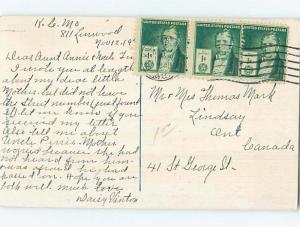 K.C. Mo
811 Linwood
Nov 12-19
Dear Aunt Annie & Uncle
I wrote you at length
about my dear little
Mother but did not have
St. and number just found
let me know if you
received my letter
Also tell me about
Uncle Mother
worried because she had
not heard from him
Hope you are
both well much love
UNITED STATES POSTAGE
1¢
UNITED STATES POSTAGE
1¢
UNITED STATES POSTAGE
1¢
Mr & Mrs Thomas Mark
Lindsay
Ont
Canada
41 St George St